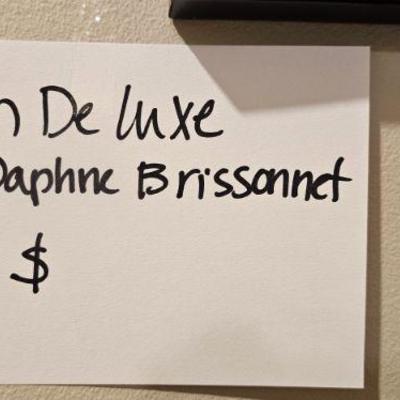 n De luxe
Daphne Brissonnet
$